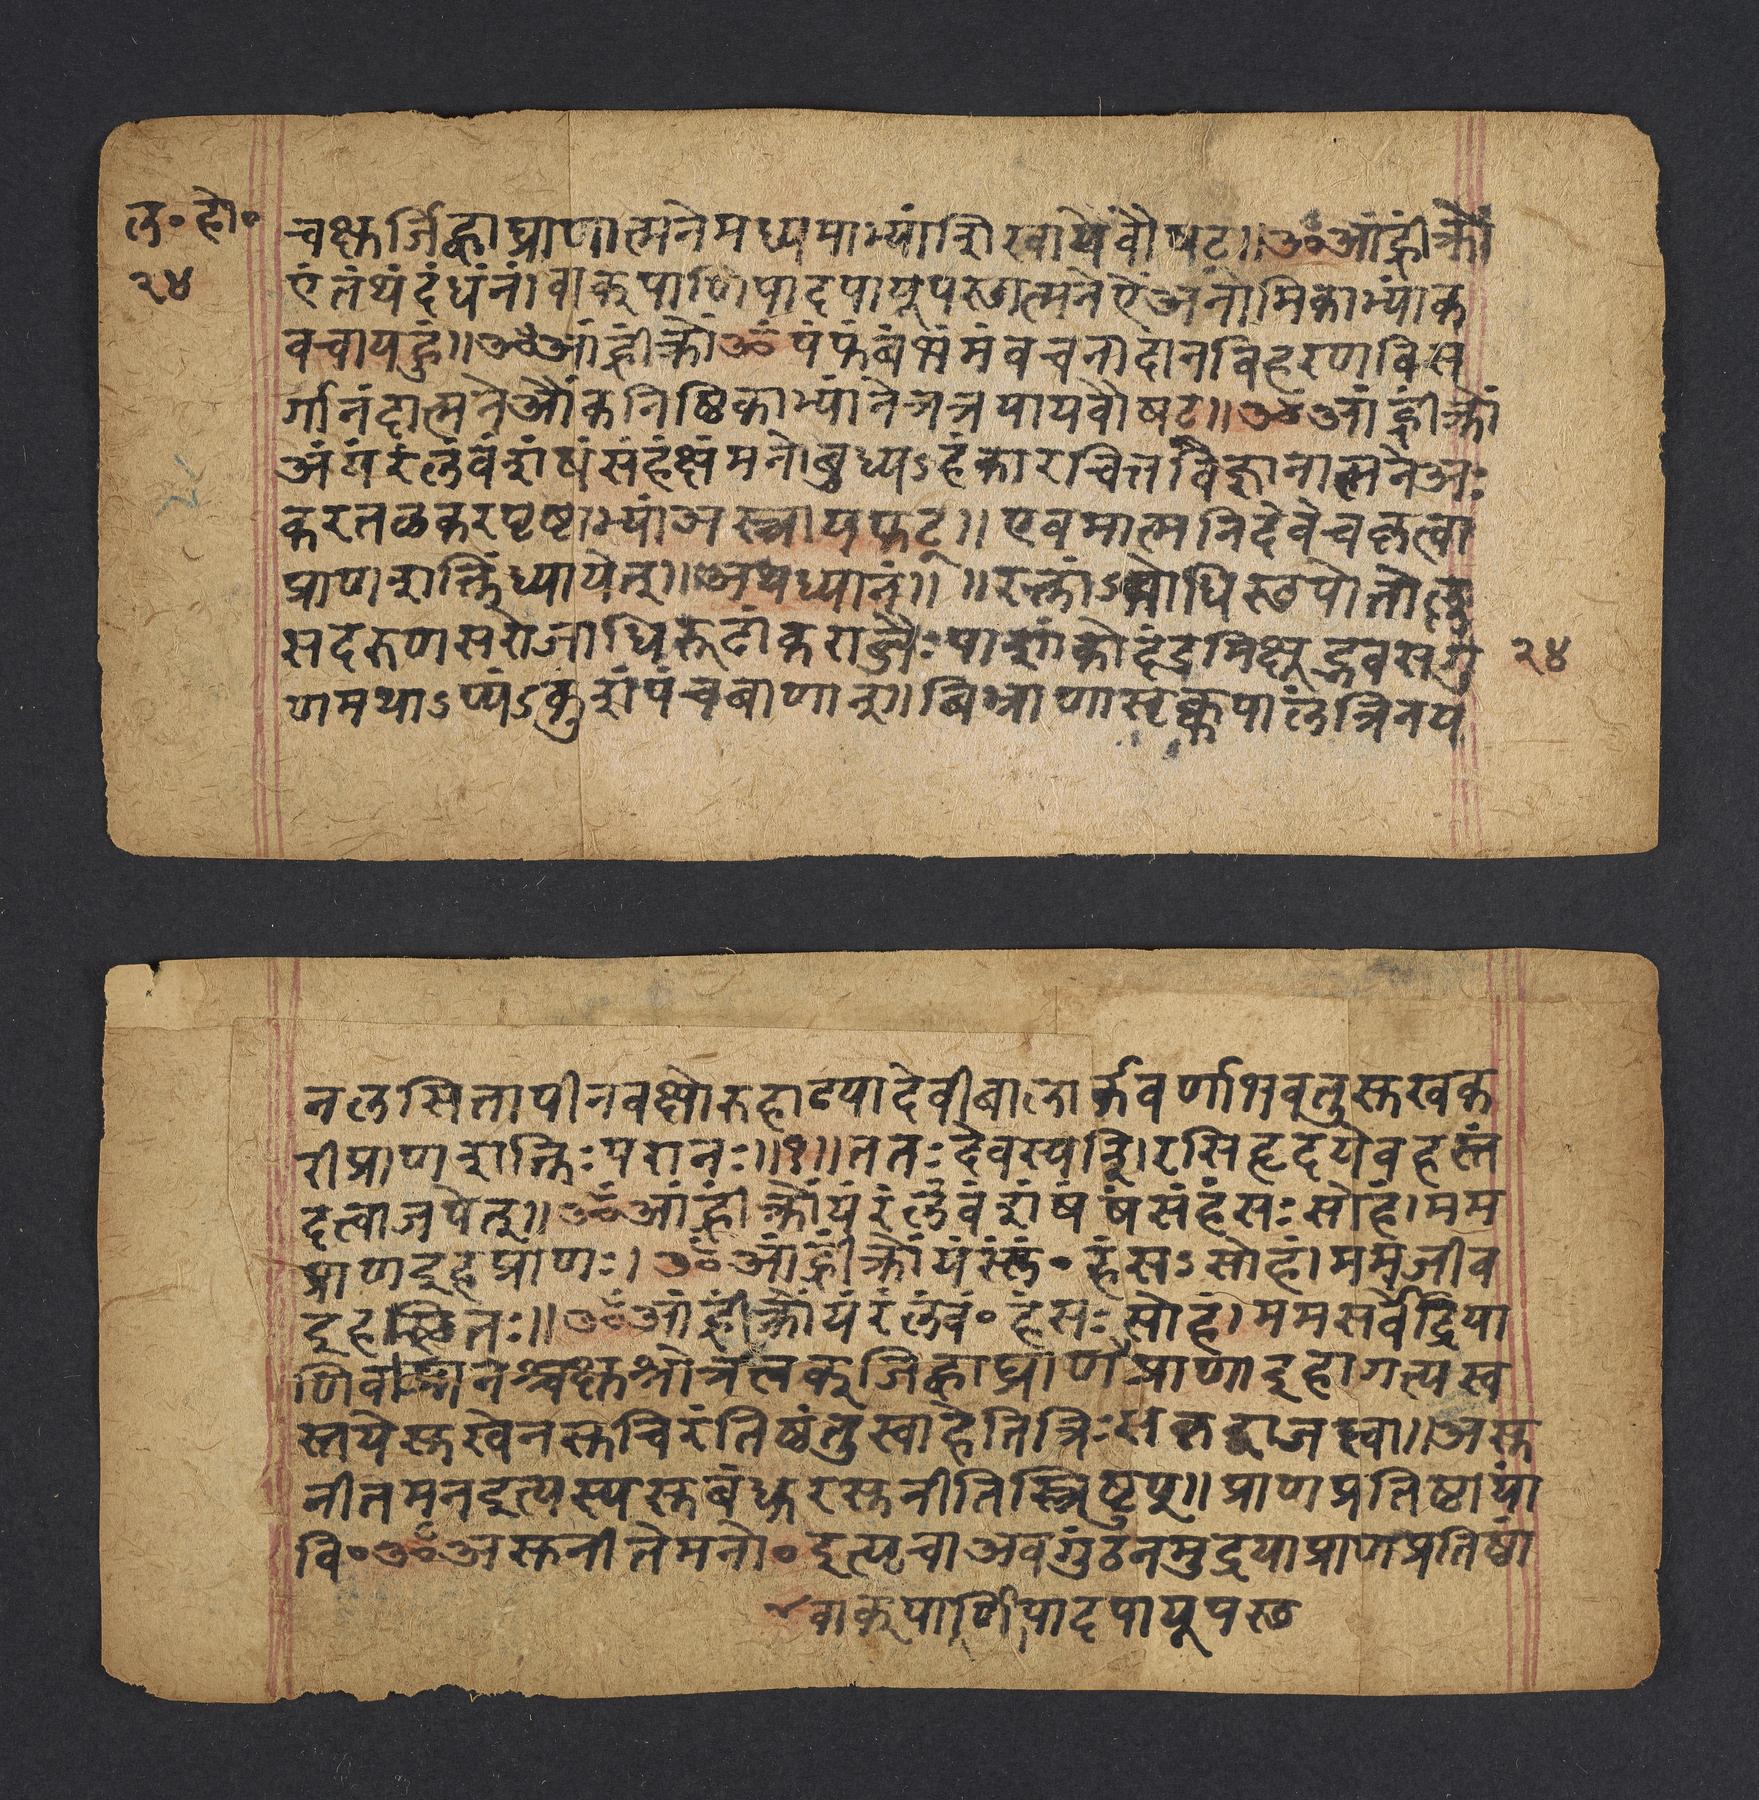 ल॰ हो॰
२४
चक्षुर्जिह्वाघ्राणात्मनेमध्यमाभ्यांशिखायैवौषट्॥ॐआंह्रींक्रौं
एंतंथंदंधंनं।वाक्पाणिपादपायूपस्छात्मनेऐंअनामिकाभ्यांक
वचायहुं॥ॐआंह्रींक्रौंॐपंफंबंभंमंवचनादानविहरणविस
र्गानंदात्मनेऔंकनिष्ठिकाभ्यांनेत्रत्रयायवौषट्॥ॐआंह्रींक्रौं
अंयंरंलंवंशंषंसंहंक्षंमनोबुध्यऽहंकारचित्तविज्ञानात्मनेअः
करतळकरपृष्टाभ्यांअस्त्रायफट्॥एवमात्मनिदेवेचकृत्वा
प्राणशक्तिंध्यायेत्॥अथध्यानं॥॥रक्तांऽभोधिस्छपोतोल्लु
सदरुणसरोजाधिरूढाकराब्जैःपाशंकोदंडमिक्षूद्भवसगु
२४
णमथाऽप्यंऽकुशंपंचबाणान्॥बिभ्राणासृक्कपालंत्रिनय
नलसितापीनवक्षोरुहाढ्यादेवीबालार्कवर्णाभवतुसुखक
रीप्राणशक्तिःपरानः॥१॥ततःदेवस्यशिरसिहृदयेवहस्तं
दत्वाजपेत्॥ॐआंह्रींक्रौंयंरंलंवंशंषंषंसंहंसःसोहं।मम
प्राणइहप्राणः।ॐआंह्रींक्रौंयं॰हंसःसोहं।ममजीव
इहस्छितः॥ॐआंह्रींक्रौंयंरंलंवं॰हंसःसोहं।ममसर्वेंद्रिया
णिवाङ्मनश्चक्षुश्रोत्रत्वक्जिह्वाघ्राणप्राणाइहागत्यस्व
स्तयेसुखेनसुचिरंतिष्ठंतुस्वाहेतित्रिःसकृद्वाजप्त्वा॥असु
नीतमनइत्यस्यसुबंधुरसुनीतिस्त्रिष्टुप्॥प्राणप्रतिष्ठायां
वि॰ॐअसुनीतेमनो॰इत्यृचाअवगुंठनमुद्रयाप्राणप्रतिष्ठां
वाक्पाणिपादपायूपस्छ